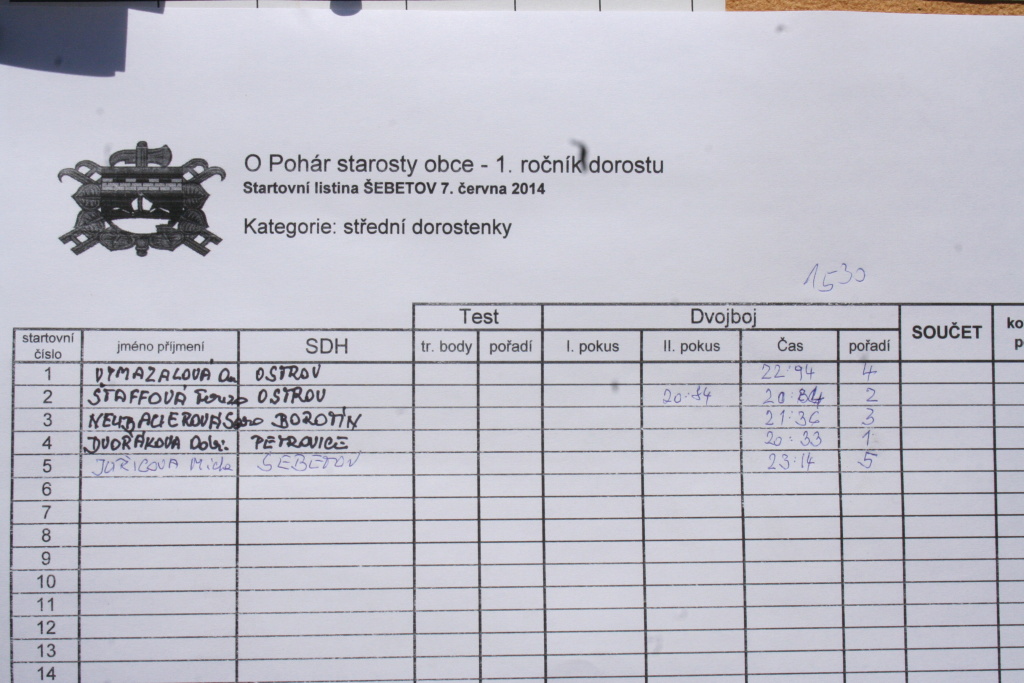 O Pohár starosty obce - 1. ročník dorostu
Startovní listina ŠEBETOV 7. června 2014
Kategorie: střední dorostenky
1530
Test Dvojboj SOUČET
startovní číslo jméno příjmení SDH tr. body pořadí I. pokus II. pokus Čas pořadí
1 VYMAZALOVA OSTROV 22:94 4
2 ŠTAFFOVÁ OSTROV 20:84 20:84 2
3 BOROTÍN 21:36 3
4 DVOŘÁKOVA PETROVICE 20:33 1
5 ŠEBETOV 23:14 5
6
7
8
9
10
11
12
13
14